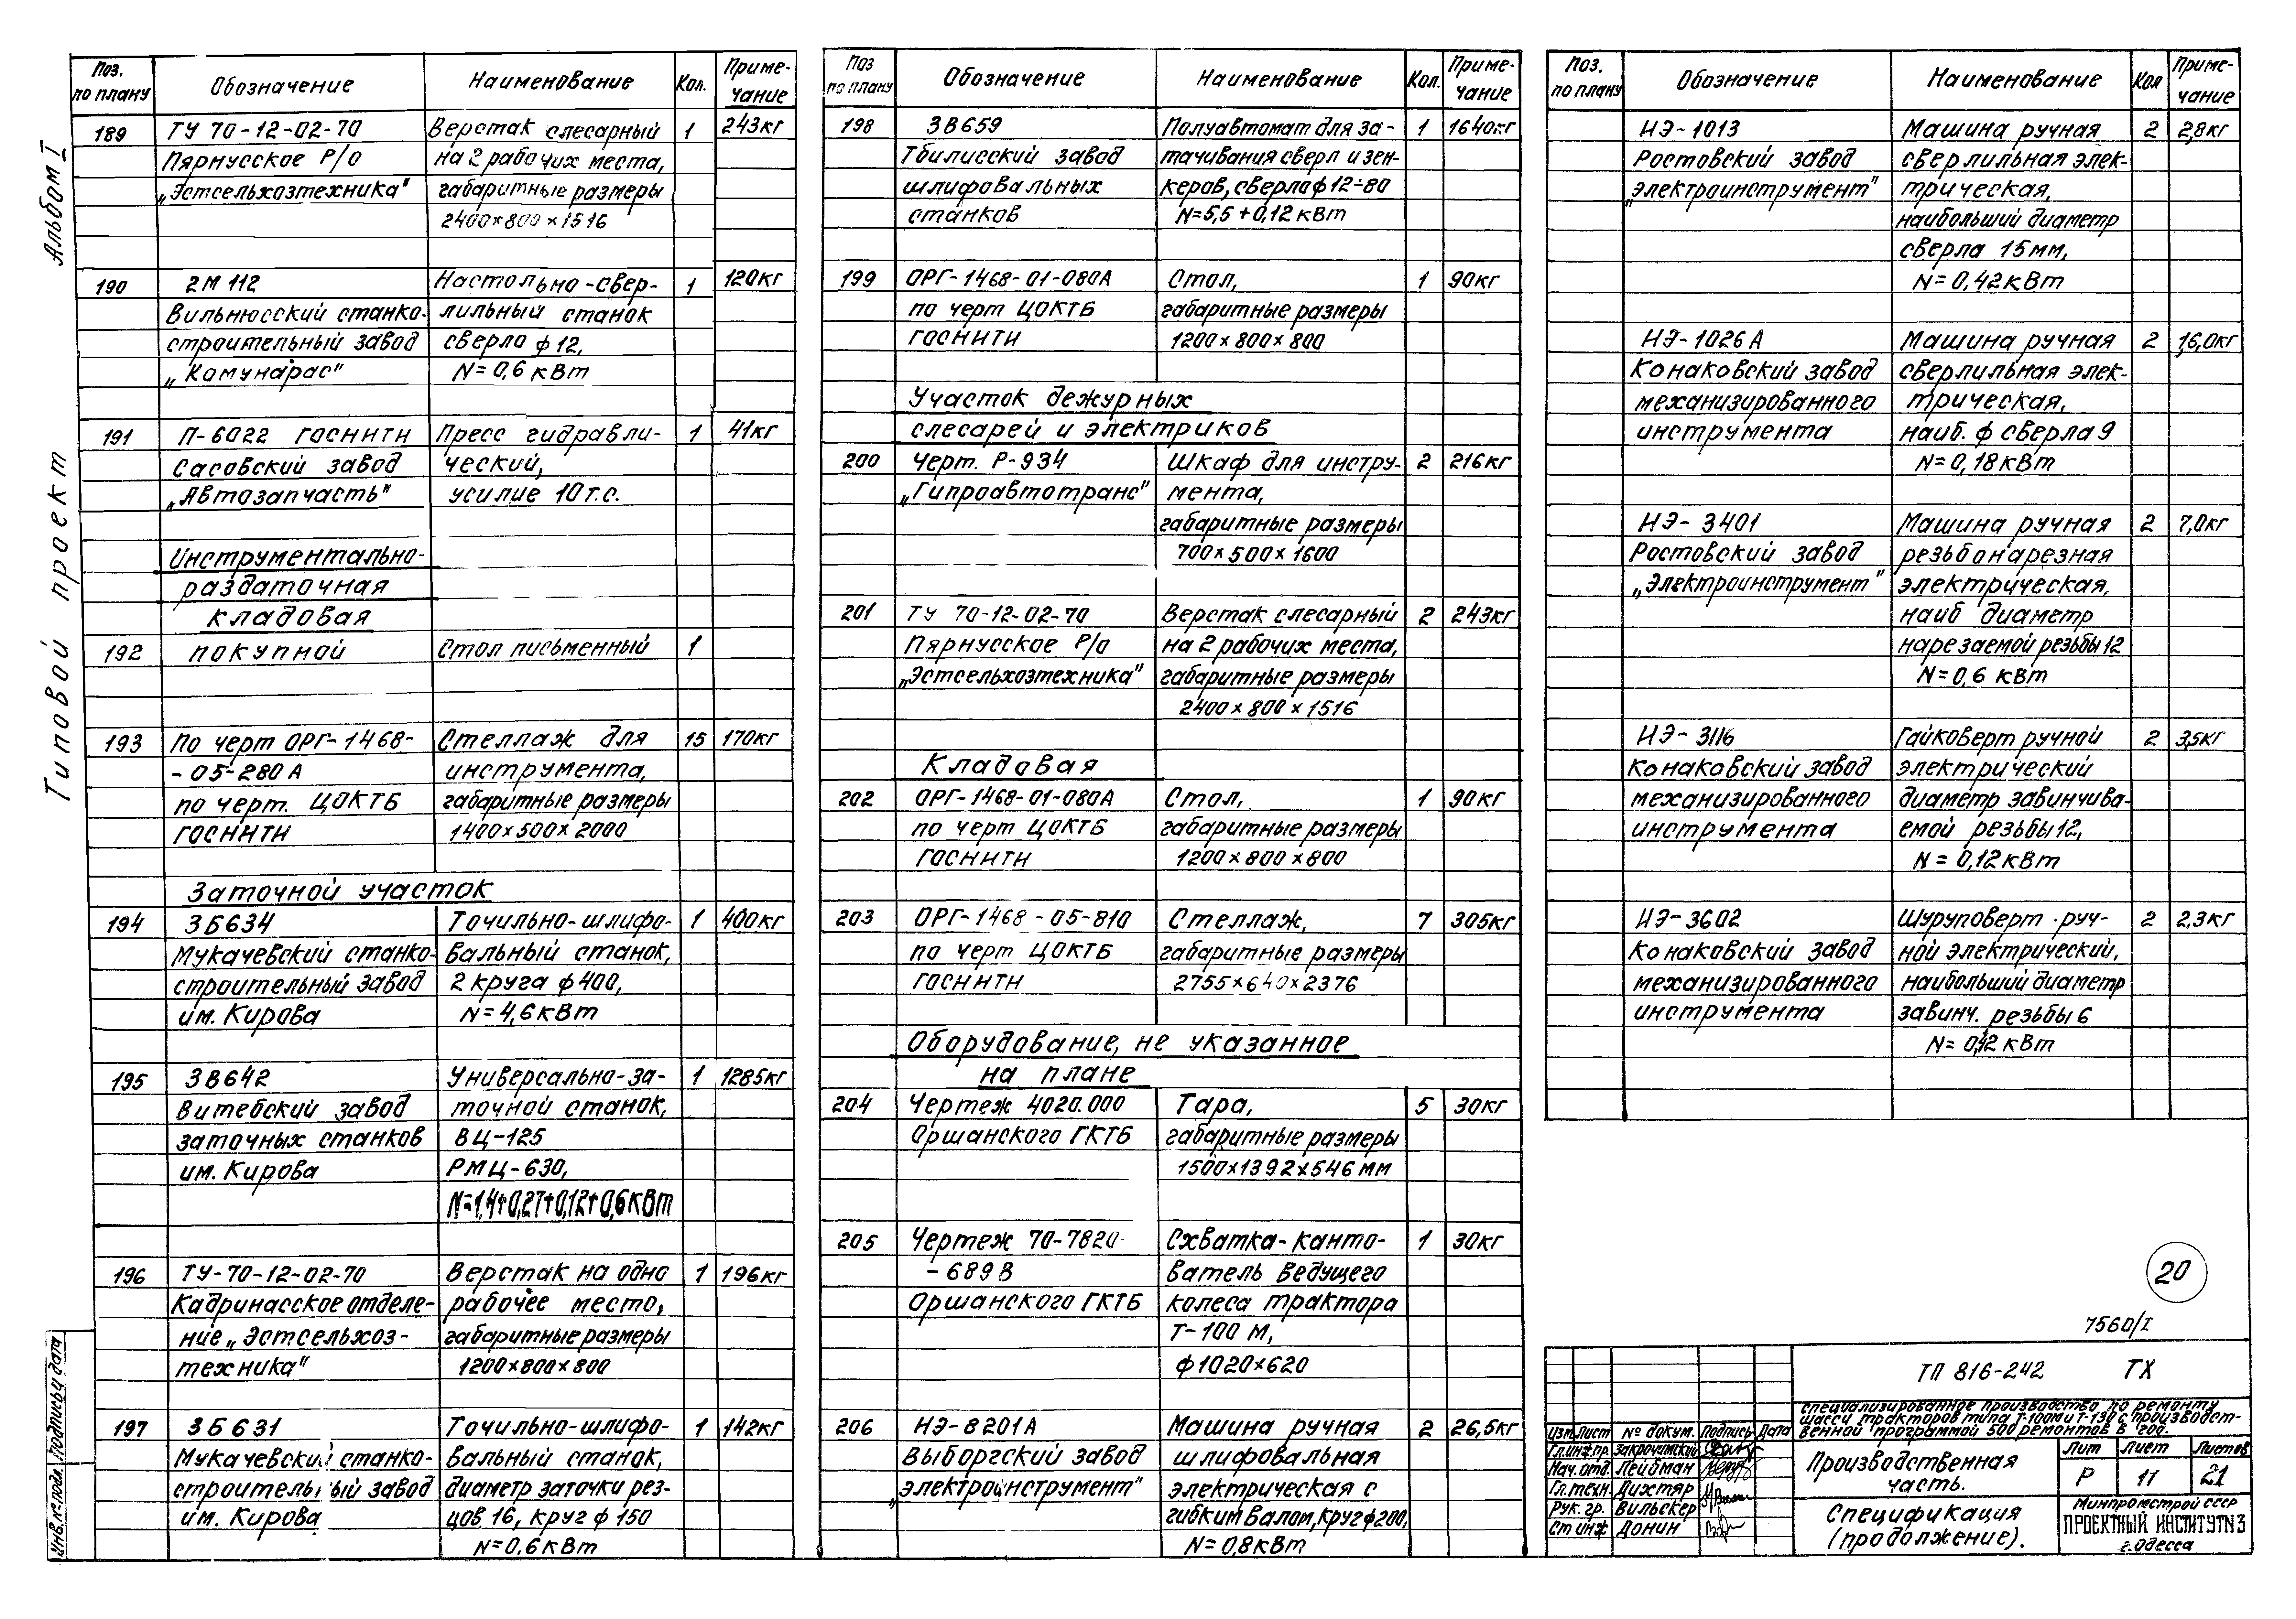 Альбом I
Типовой проект
Инв. № подл. Подпись и дата
Поз. по плану Обозначение Наименование Кол. Примечание
189 ТУ 70-12-02-70 Верстак слесарный 1 243кг
Пярнусское Р/о на 2 рабочих места,
„Эстсельхозтехника" габаритные размеры
2400×800×1516
190 2М112 Настольно-свер- 1 120кг
Вильнюсский станко- лильный станок
строительный завод сверла ф12,
„Комунарас" N=0,6 кВт
191 П-6022 ГОСНИТИ Пресс гидравли- 1 41кг
Сасовский завод ческий,
„Автозапчасть" усилие 10т.с.
Инструментально-
раздаточная
кладовая
192 покупной Стол письменный 1
193 По черт ОРГ-1468- Стеллаж для 15 170кг
-05-280А инструмента,
по черт. ЦОКТБ габаритные размеры
ГОСНИТИ 1400×500×2000
Заточной участок
194 3Б634 Точильно-шлифо- 1 400кг
Мукачевский станко- вальный станок,
строительный завод 2 круга ф400,
им. Кирова N=4,6кВт
195 3В642 Универсально-за- 1 1285кг
Витебский завод точной станок,
заточных станков ВЦ-125
им. Кирова РМЦ-630,
N=1,4+0,27+0,12+0,6кВт
196 ТУ-70-12-02-70 Верстак на одно 1 196кг
Кадринасское отделе- рабочее место,
ние „Эстсельхоз- габаритные размеры
техника" 1200×800×800
197 3Б631 Точильно-шлифо- 1 142кг
Мукачевский станко- вальный станок,
строительный завод диаметр заточки рез-
им. Кирова цов 16, круг ф 150
N=0,6кВт
Поз по плану Обозначение Наименование Кол. Примечание
198 3В659 Полуавтомат для за- 1 1640кг
Тбилисский завод тачивания сверл и зен-
шлифовальных керов, сверла ф12÷80
станков N=5,5+0,12кВт
199 ОРГ-1468-01-080А Стол, 1 90кг
по черт ЦОКТБ габаритные размеры
ГОСНИТИ 1200×800×800
Участок дежурных
слесарей и электриков
200 Черт. Р-934 Шкаф для инстру- 2 216кг
„Гипроавтотранс" мента,
габаритные размеры
700×500×1600
201 ТУ 70-12-02-70 Верстак слесарный 2 243кг
Пярнусское Р/о на 2 рабочих места,
„Эстсельхозтехника" габаритные размеры
2400×800×1516
Кладовая
202 ОРГ-1468-01-080А Стол, 1 90кг
по черт ЦОКТБ габаритные размеры
ГОСНИТИ 1200×800×800
203 ОРГ-1468-05-810 Стеллаж, 7 305кг
по черт ЦОКТБ габаритные размеры
ГОСНИТИ 2755×640×2376
Оборудование, не указанное
на плане
204 Чертеж 4020.000 Тара, 5 30кг
Оршанского ГКТБ габаритные размеры
1500×1392×546мм
205 Чертеж 70-7820- Схватка-канто- 1 30кг
-689В ватель ведущего
Оршанского ГКТБ колеса трактора
Т-100М,
ф1020×620
206 ИЭ-8201А Машина ручная 2 26,5кг
Выборгский завод шлифовальная
„электроинструмент" электрическая с
гибким валом, круг ф200,
N=0,8кВт
Поз. по плану Обозначение Наименование Кол Примечание
ИЭ-1013 Машина ручная 2 2,8кг
Ростовский завод сверлильная элек-
„электроинструмент" трическая,
наибольший диаметр
сверла 15мм,
N=0,42кВт
ИЭ-1026А Машина ручная 2 16,0кг
Конаковский завод сверлильная элек-
механизированного трическая,
инструмента наиб. ф сверла 9
N=0,18кВт
ИЭ-3401 Машина ручная 2 7,0кг
Ростовский завод резьбонарезная
„Электроинструмент" электрическая,
наиб диаметр
нарезаемой резьбы 12
N=0,6 кВт
ИЭ-3116 Гайковерт ручной 2 3,5кг
Конаковский завод электрический
механизированного диаметр завинчива-
инструмента емой резьбы 12,
N=0,12кВт
ИЭ-3602 Шуруповерт руч- 2 2,3кг
Конаковский завод ной электрический,
механизированного наибольший диаметр
инструмента завинч. резьбы 6
N=0,12 кВт
20
7560/I
ТП 816-242 ТХ
специализированное производство по ремонту
шасси тракторов типа Т-100М и Т-130 с производст-
венной программой 500 ремонтов в год.
Изм Лист № докум. Подпись Дата
Гл.инж.пр. Закрочимский
Нач. отд. Лейбман
Гл.техн. Дихтяр
Рук. гр. Вильскер
Ст инж Донин
Производственная часть.
Лит Лист Листов
Р 17 21
Спецификация
(продолжение).
Минпромстрой СССР
ПРОЕКТНЫЙ ИНСТИТУТ№3
г. Одесса